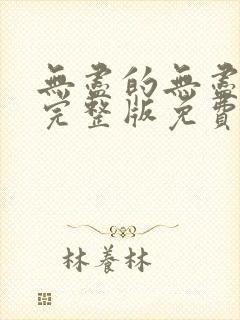 無盡的無盡
完整版免費
林養林